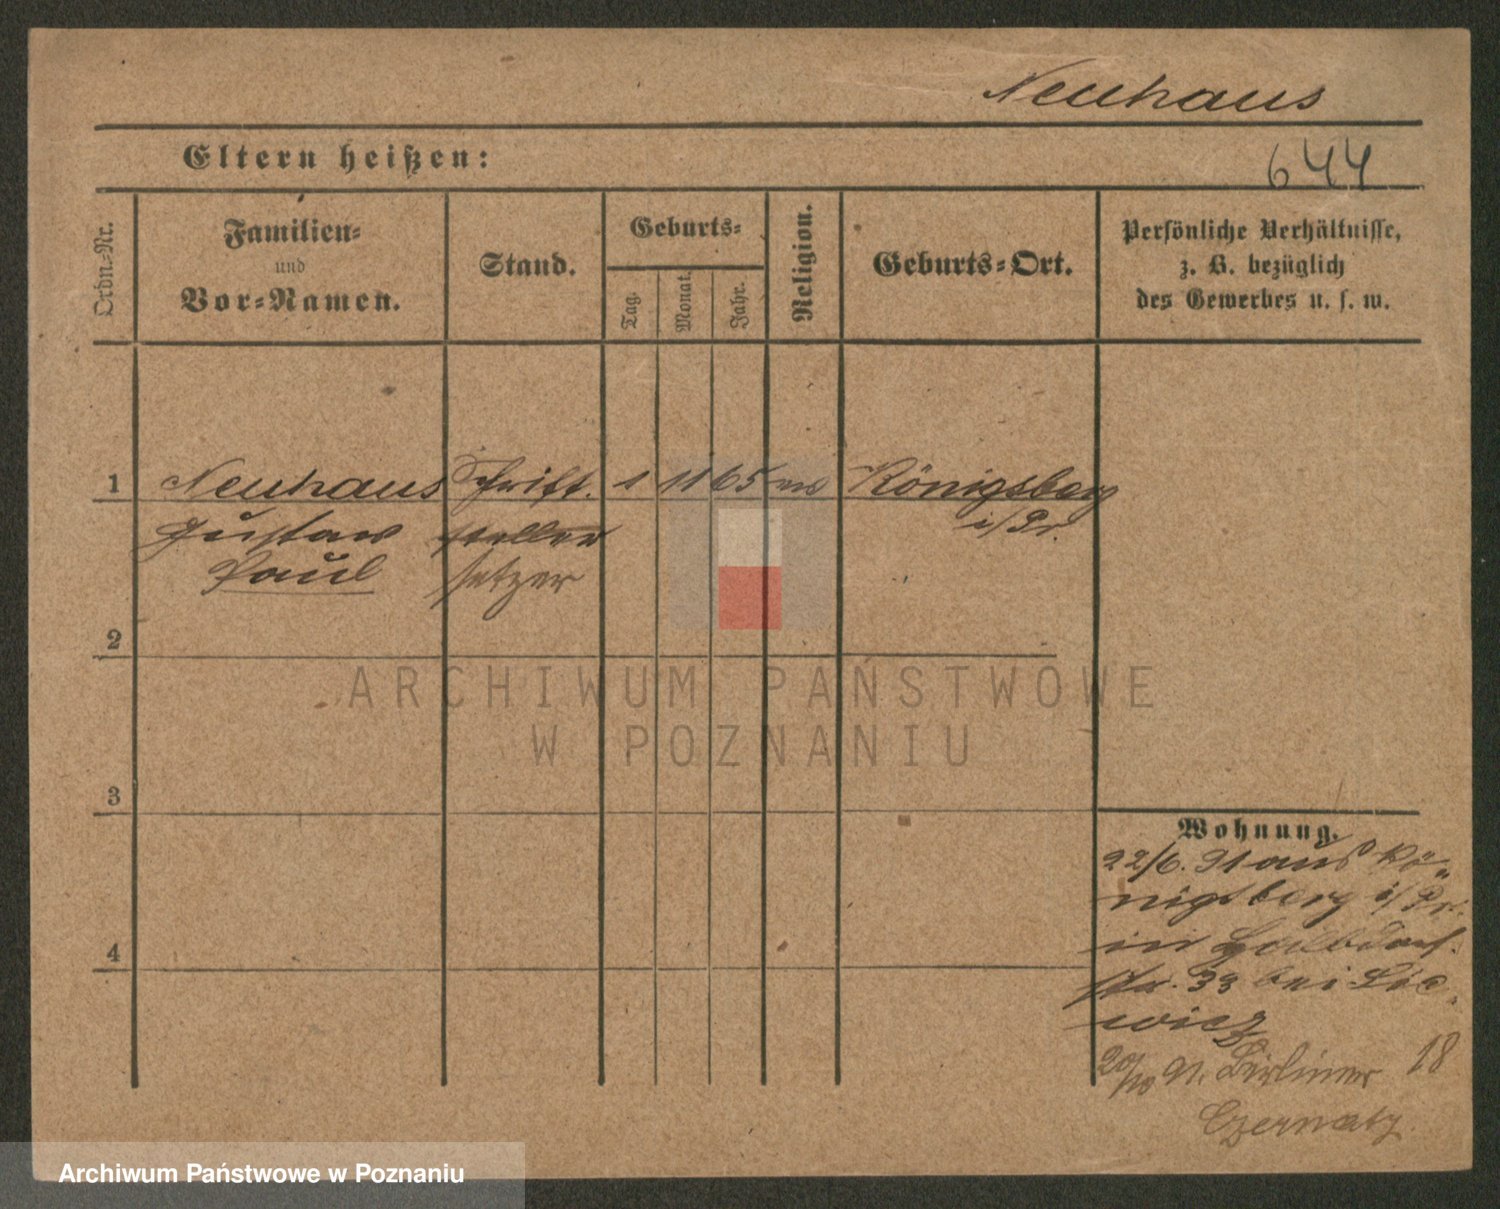 Neuhaus
Eltern heißen:
644
Ordn.-Nr.
Familien-
und
Vor-Namen.
Stand.
Geburts-
Tag.
Monat.
Jahr.
Religion.
Geburts-Ort.
Persönliche Verhältnisse,
z. B. bezüglich
des Gewerbes u. s. w.
1 Neuhaus Schrift. 1 11 65 Königsberg
Gustav steller i/Pr.
Paul setzer
2
ARCHIWUM PAŃSTWOWE
W POZNANIU
3
4
Wohnung.
22/6. 91 aus Kö-
nigsberg i/Pr.
in Halbdorf-
str. 33 bei
20/10 91. Berliner 18
Archiwum Państwowe w Poznaniu